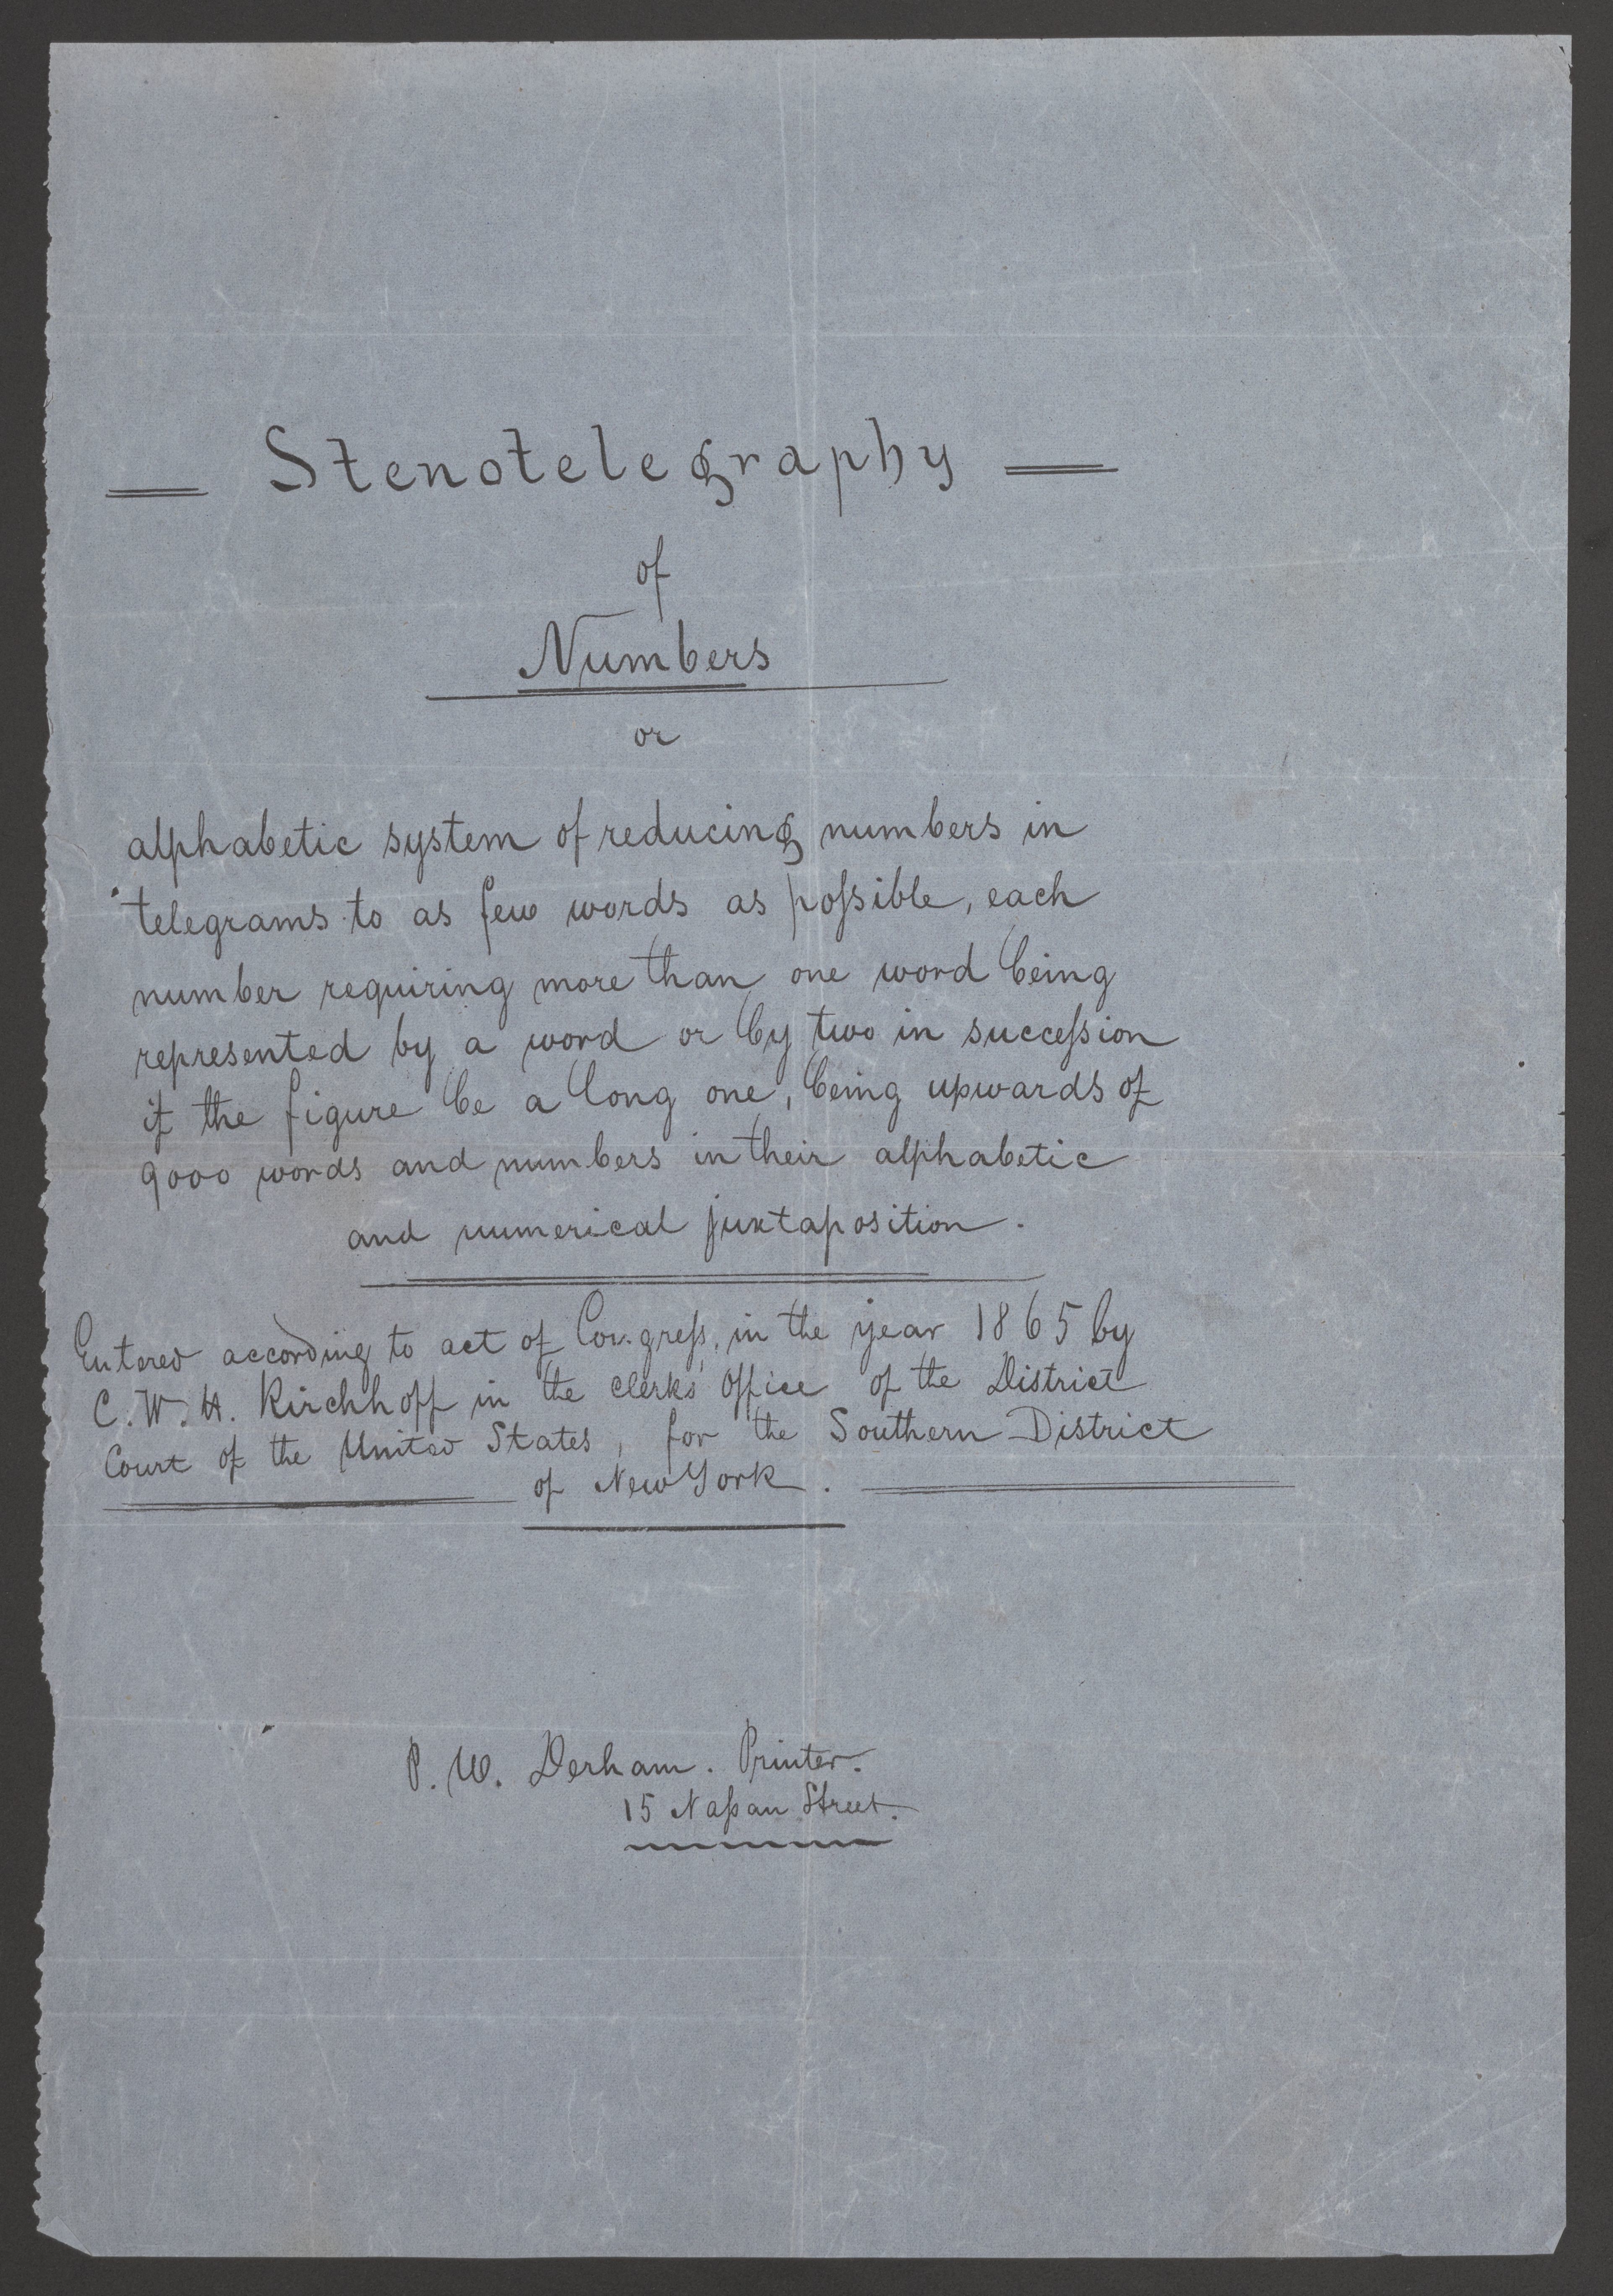 Stenotelegraphy
of
Numbers
or
alphabetic system of reducing numbers in
telegrams to as few words as poſsible, each
number requiring more than one word being
represented by a word or by two in succeſsion
if the figure be a long one, being upwards of
9000 words and numbers in their alphabetic
and numerical juxtaposition.
Entered according to act of Congreſs, in the year 1865 by
C. W. H. Kirchhoff in the clerks' office of the District
Court of the United States, for the Southern District
of New York.
P. W. Derham. Printer.
15 Naſsau Street.